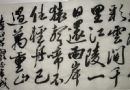 彩雲間千
里江陵一
日還兩岸
猿聲啼不
住輕舟已
過萬重山